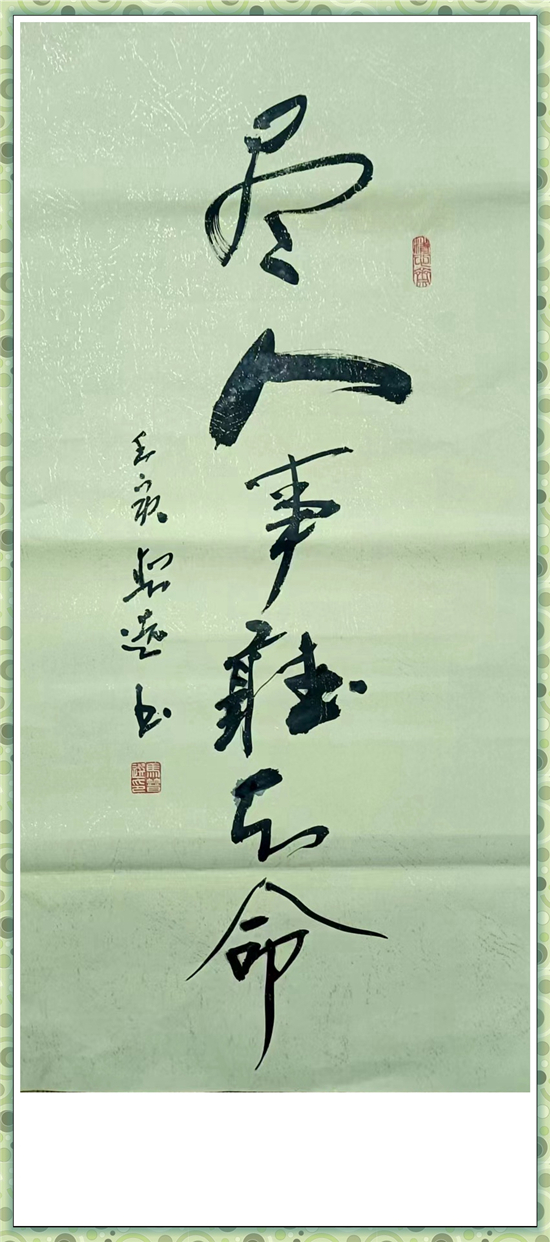 尽人事聽天命
壬寅 书